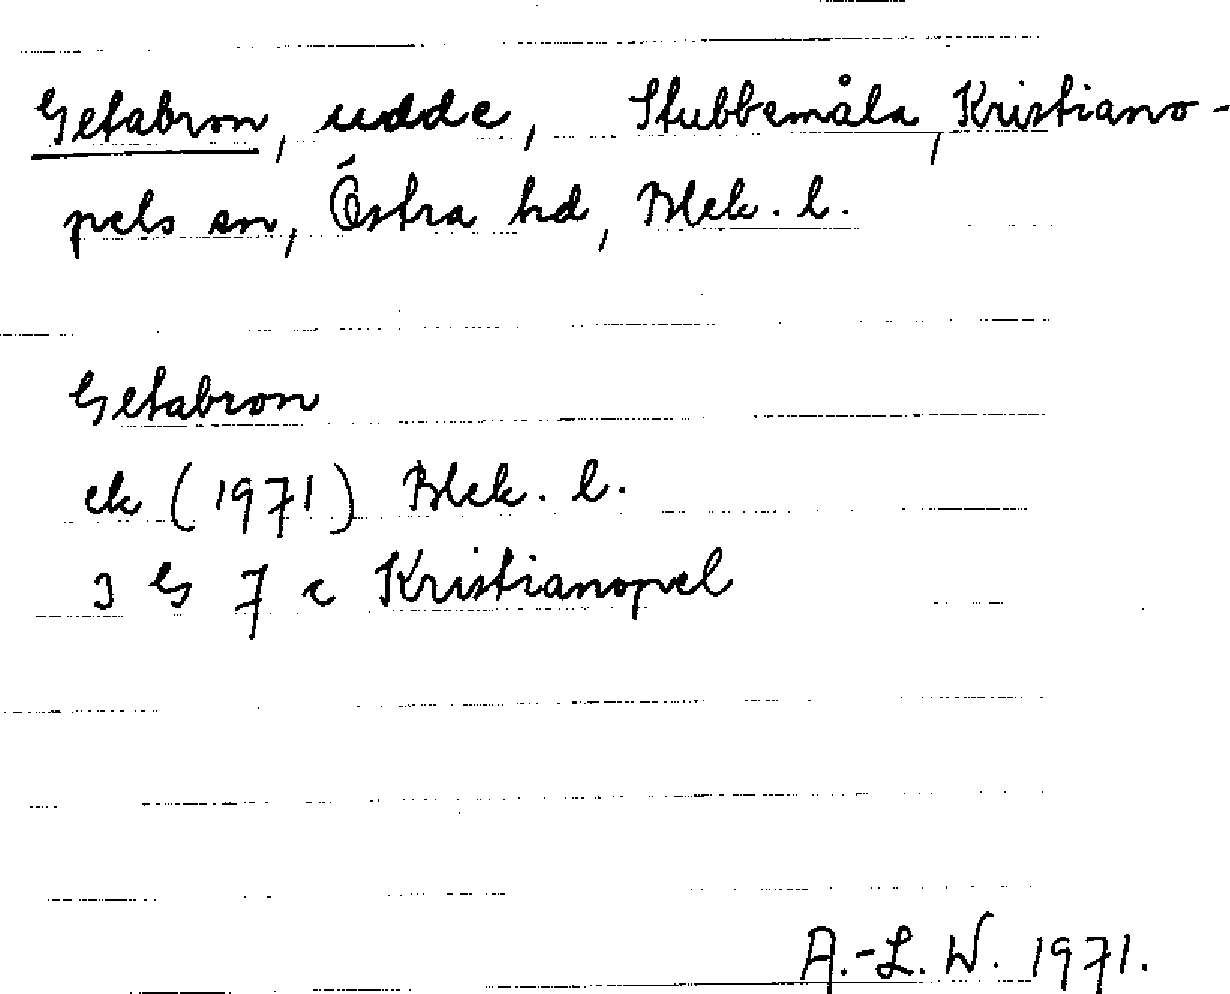 Getabron, udde, Stubbemåla, Kristiano-
pels sn, Östra hd, Blek. l.
Getabron
ek (1971) Blek. l.
3 G 7 c Kristianopel
A.-L. W. 1971.